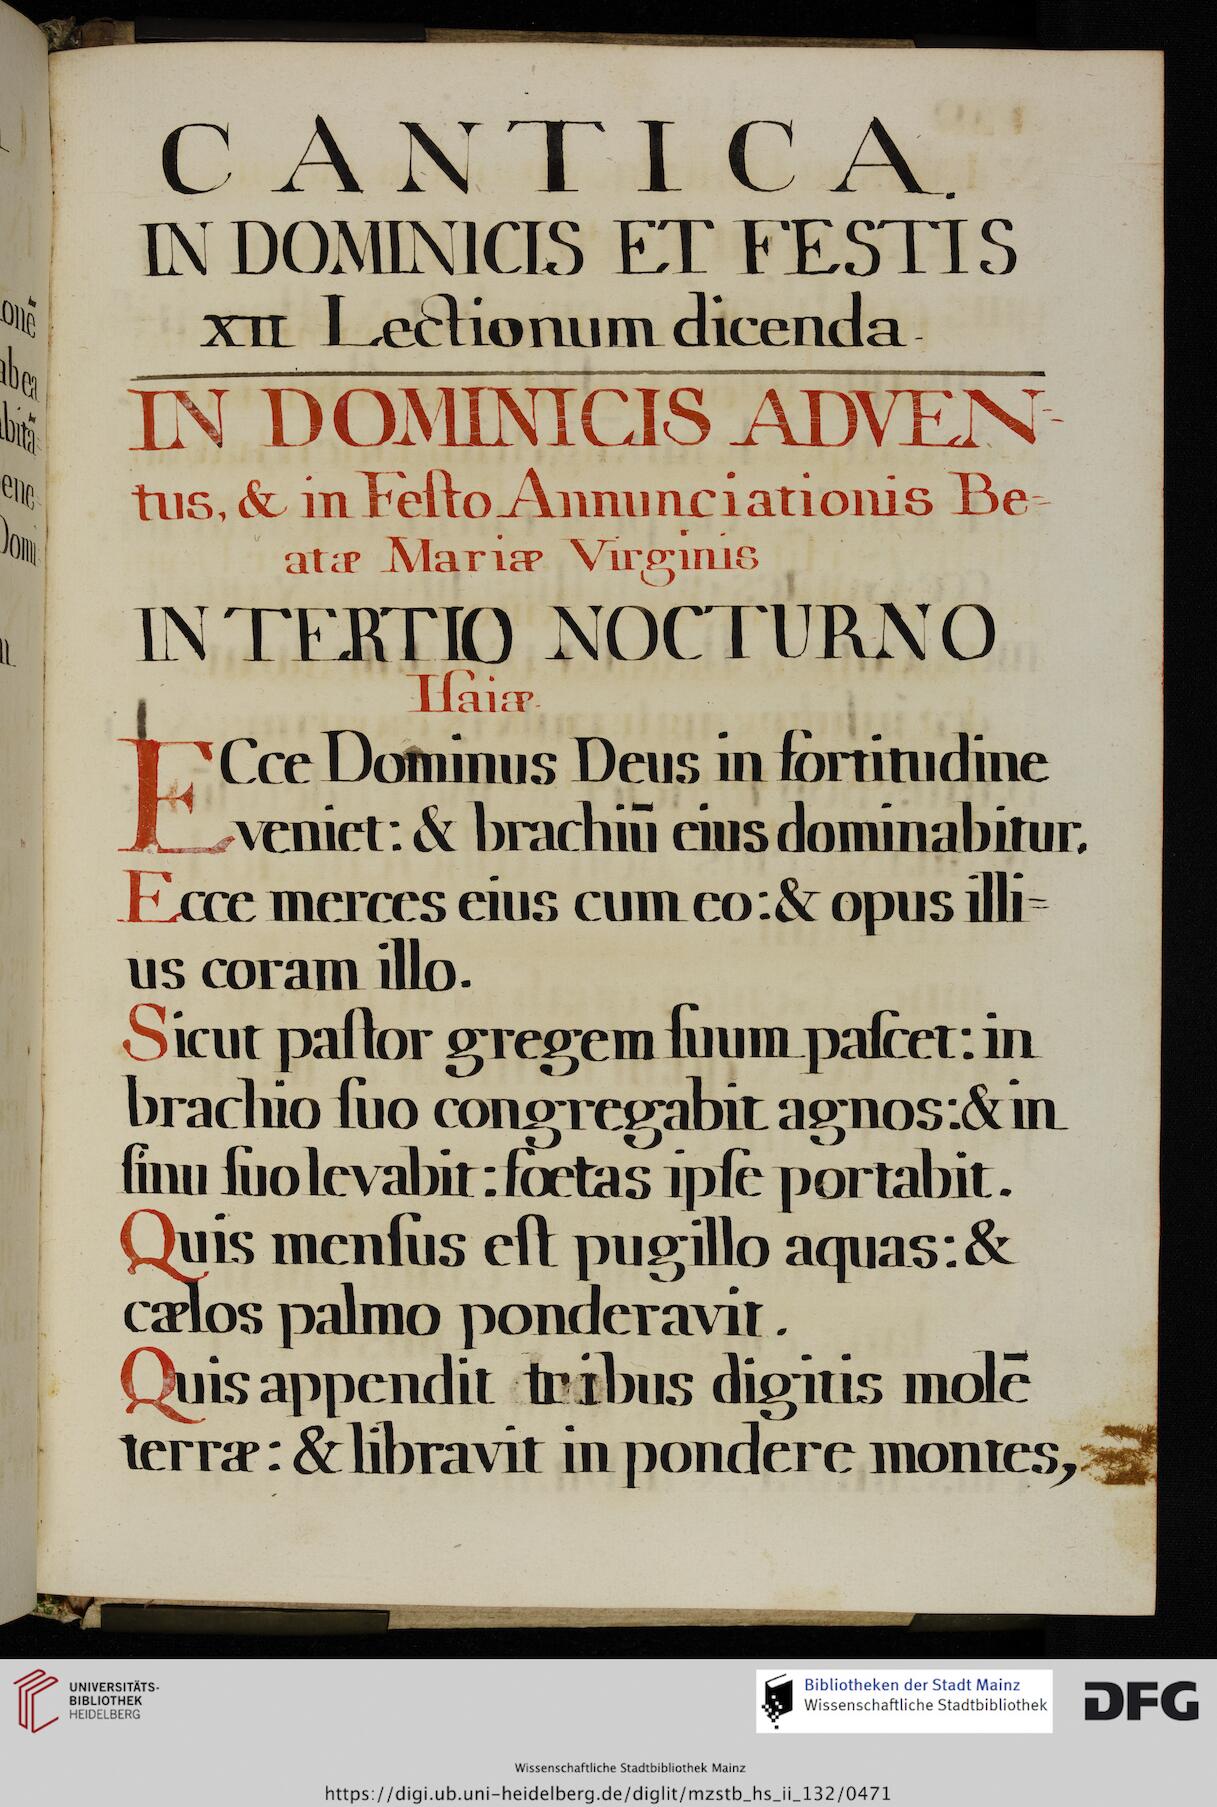 CANTICA.
IN DOMINICIS ET FESTIS
XII Lectionum dicenda.
IN DOMINICIS ADVEN=
tus, & in Feſto Annunciationis Be=
atæ Mariæ Virginis
IN TERTIO NOCTURNO
Iſaiæ.
ECce Dominus Deus in fortitudine
veniet: & brachiū eius dominabitur.
Ecce merces eius cum eo: & opus illi=
us coram illo.
Sicut paſtor gregem ſuum paſcet: in
brachio ſuo congregabit agnos: & in
ſinu ſuo levabit: fœtas ipſe portabit.
Quis menſus eſt pugillo aquas: &
cælos palmo ponderavit.
Quis appendit tribus digitis molē
terræ: & libravit in pondere montes,
onē
ab ea
bitā=
ene=
Domi
UNIVERSITÄTS-
BIBLIOTHEK
HEIDELBERG
Bibliotheken der Stadt Mainz
Wissenschaftliche Stadtbibliothek
DFG
Wissenschaftliche Stadtbibliothek Mainz
https://digi.ub.uni-heidelberg.de/diglit/mzstb_hs_ii_132/0471